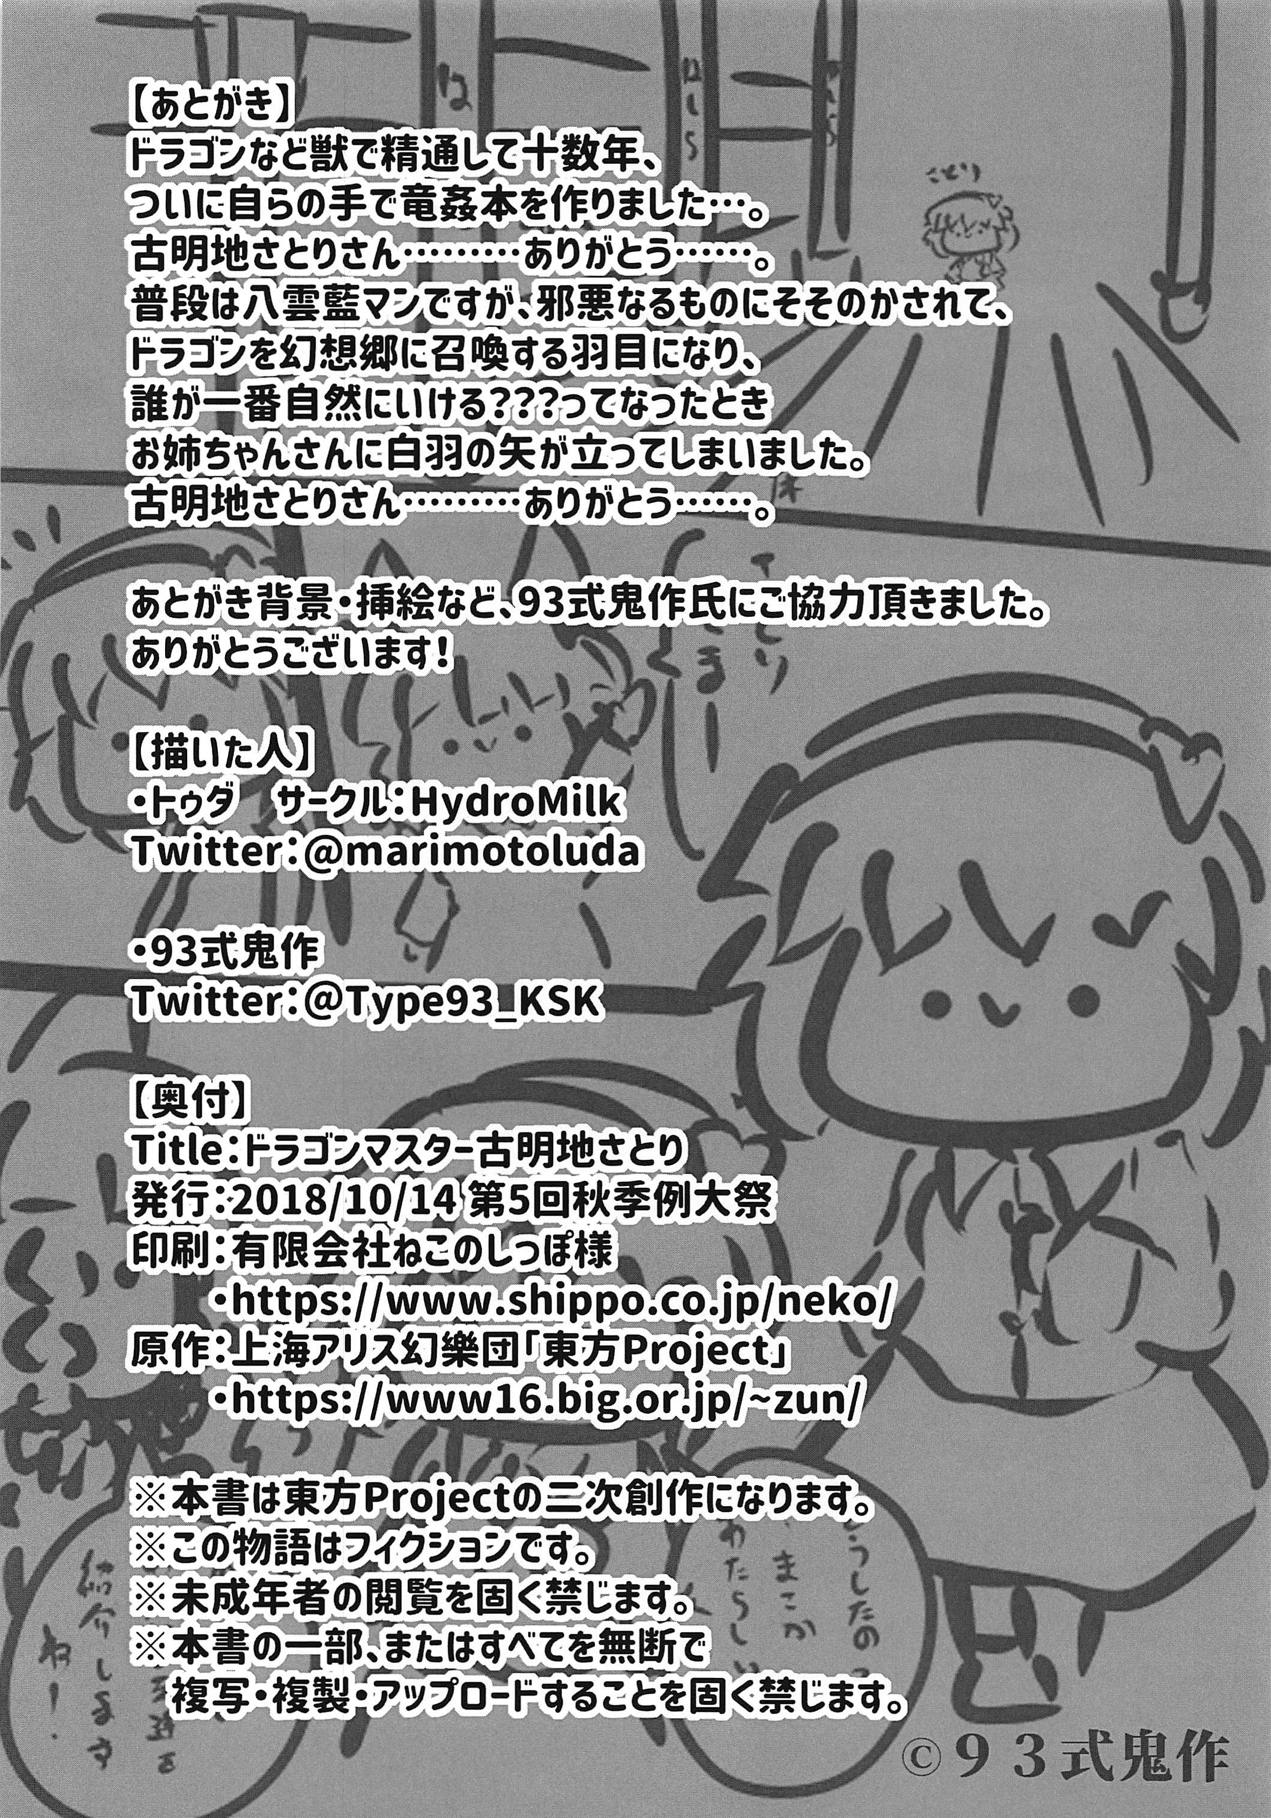 【あとがき】
ドラゴンなど獣で精通して十数年、
ついに自らの手で竜姦本を作りました…。
古明地さとりさん………ありがとう……。
普段は八雲藍マンですが、邪悪なるものにそそのかされて、
ドラゴンを幻想郷に召喚する羽目になり、
誰が一番自然にいける???ってなったとき
お姉ちゃんさんに白羽の矢が立ってしまいました。
古明地さとりさん………ありがとう……。
あとがき背景・挿絵など、93式鬼作氏にご協力頂きました。
ありがとうございます!
【描いた人】
・トゥダ　サークル:HydroMilk
Twitter:@marimotoluda
・93式鬼作
Twitter:@Type93_KSK
【奥付】
Title:ドラゴンマスター古明地さとり
発行:2018/10/14 第5回秋季例大祭
印刷:有限会社ねこのしっぽ様
・https://www.shippo.co.jp/neko/
原作:上海アリス幻樂団「東方Project」
・https://www16.big.or.jp/~zun/
※本書は東方Projectの二次創作になります。
※この物語はフィクションです。
※未成年者の閲覧を固く禁じます。
※本書の一部、またはすべてを無断で
複写・複製・アップロードすることを固く禁じます。
©９３式鬼作
さとり
は
はしら
床
さとり
さまー
まさか
わたらしい
紹介します
ね!